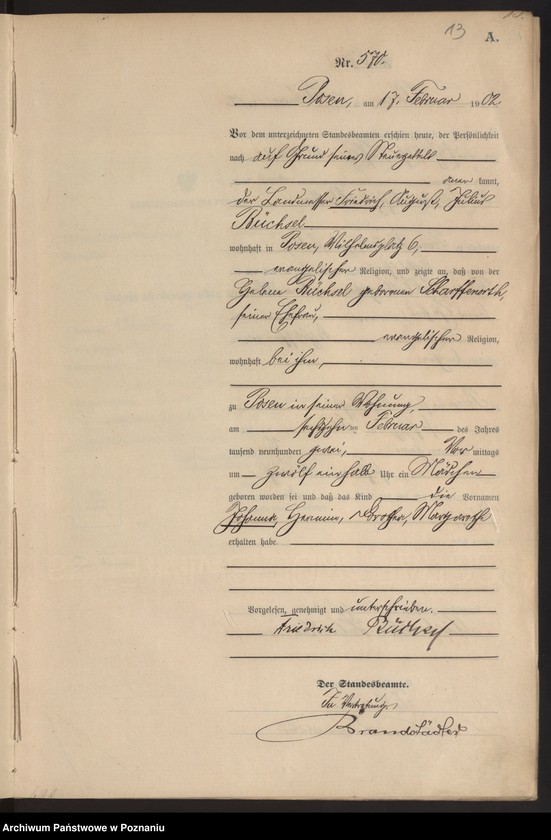 13
A.
Nr. 570.
Posen, am 17. Februar 1902
Vor dem unterzeichneten Standesbeamten erschien heute, der Persönlichkeit
nach auf Grund seines Steuerzettels
aner kannt,
der Landmesser Friedrich, August, Julius
Büchsel
wohnhaft in Posen, Wilhelmsplatz 6,
evangelischer Religion, und zeigte an, daß von der
Helene Büchsel geborenen Scharffenorth,
seiner Ehefrau,
evangelischer Religion,
wohnhaft bei ihm,
zu Posen in seiner Wohnung,
am sechszehnten Februar des Jahres
tausend neunhundert zwei, Vor mittags
um zwölf einhalb Uhr ein Mädchen
geboren worden sei und daß das Kind die Vornamen
Johanna, Hermine, Dorothea, Margarethe
erhalten habe.
Vorgelesen, genehmigt und unterschrieben.
Friedrich Büchsel
Der Standesbeamte.
In Vertretung
Brandstädter
Archiwum Państwowe w Poznaniu